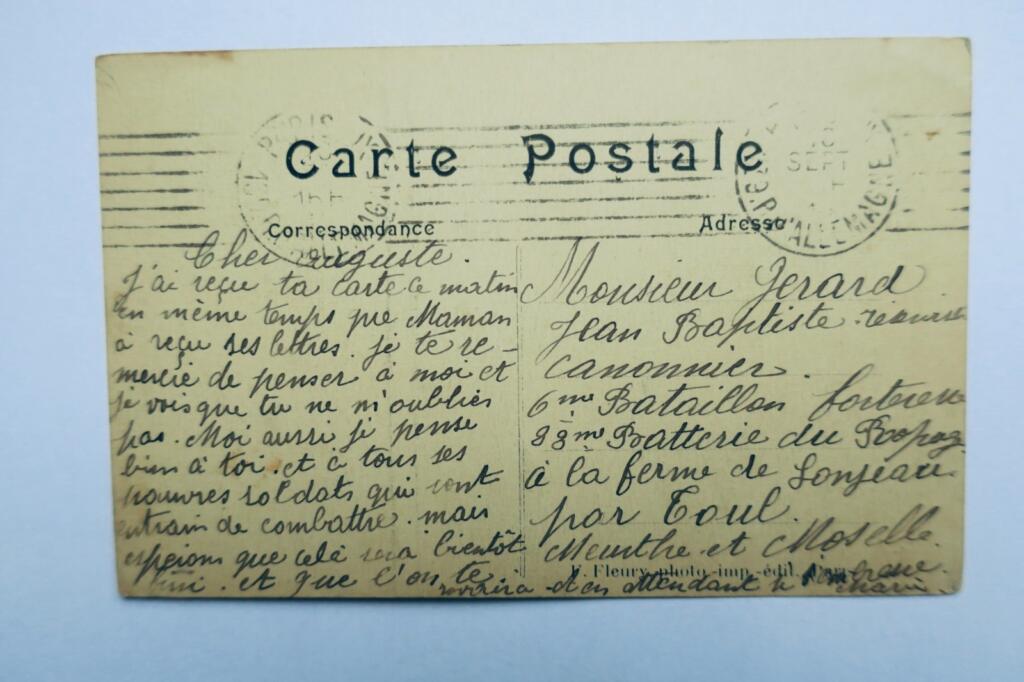 Carte Postale
Correspondance
Adresse
PARIS
SEPT
D'ALLEMAGNE
Cher Auguste.
J'ai reçu ta carte ce matin
en même temps que Maman
à reçu ses lettres. je te re-
mercie de penser à moi et
je vois que tu ne m'oublies
pas. Moi aussi je pense
bien à toi. et à tous ses
pauvres soldats qui sont
entrain de combattre. mais
esperons que celà sera bientôt
fini. et que l'on te
reverra et en attendant je
Monsieur Jerard
Jean Baptiste
Canonnier.
6me Bataillon forteresse
Batterie du
à la ferme de
par Toul.
Meurthe et Moselle.
Fleury photo-imp-édit